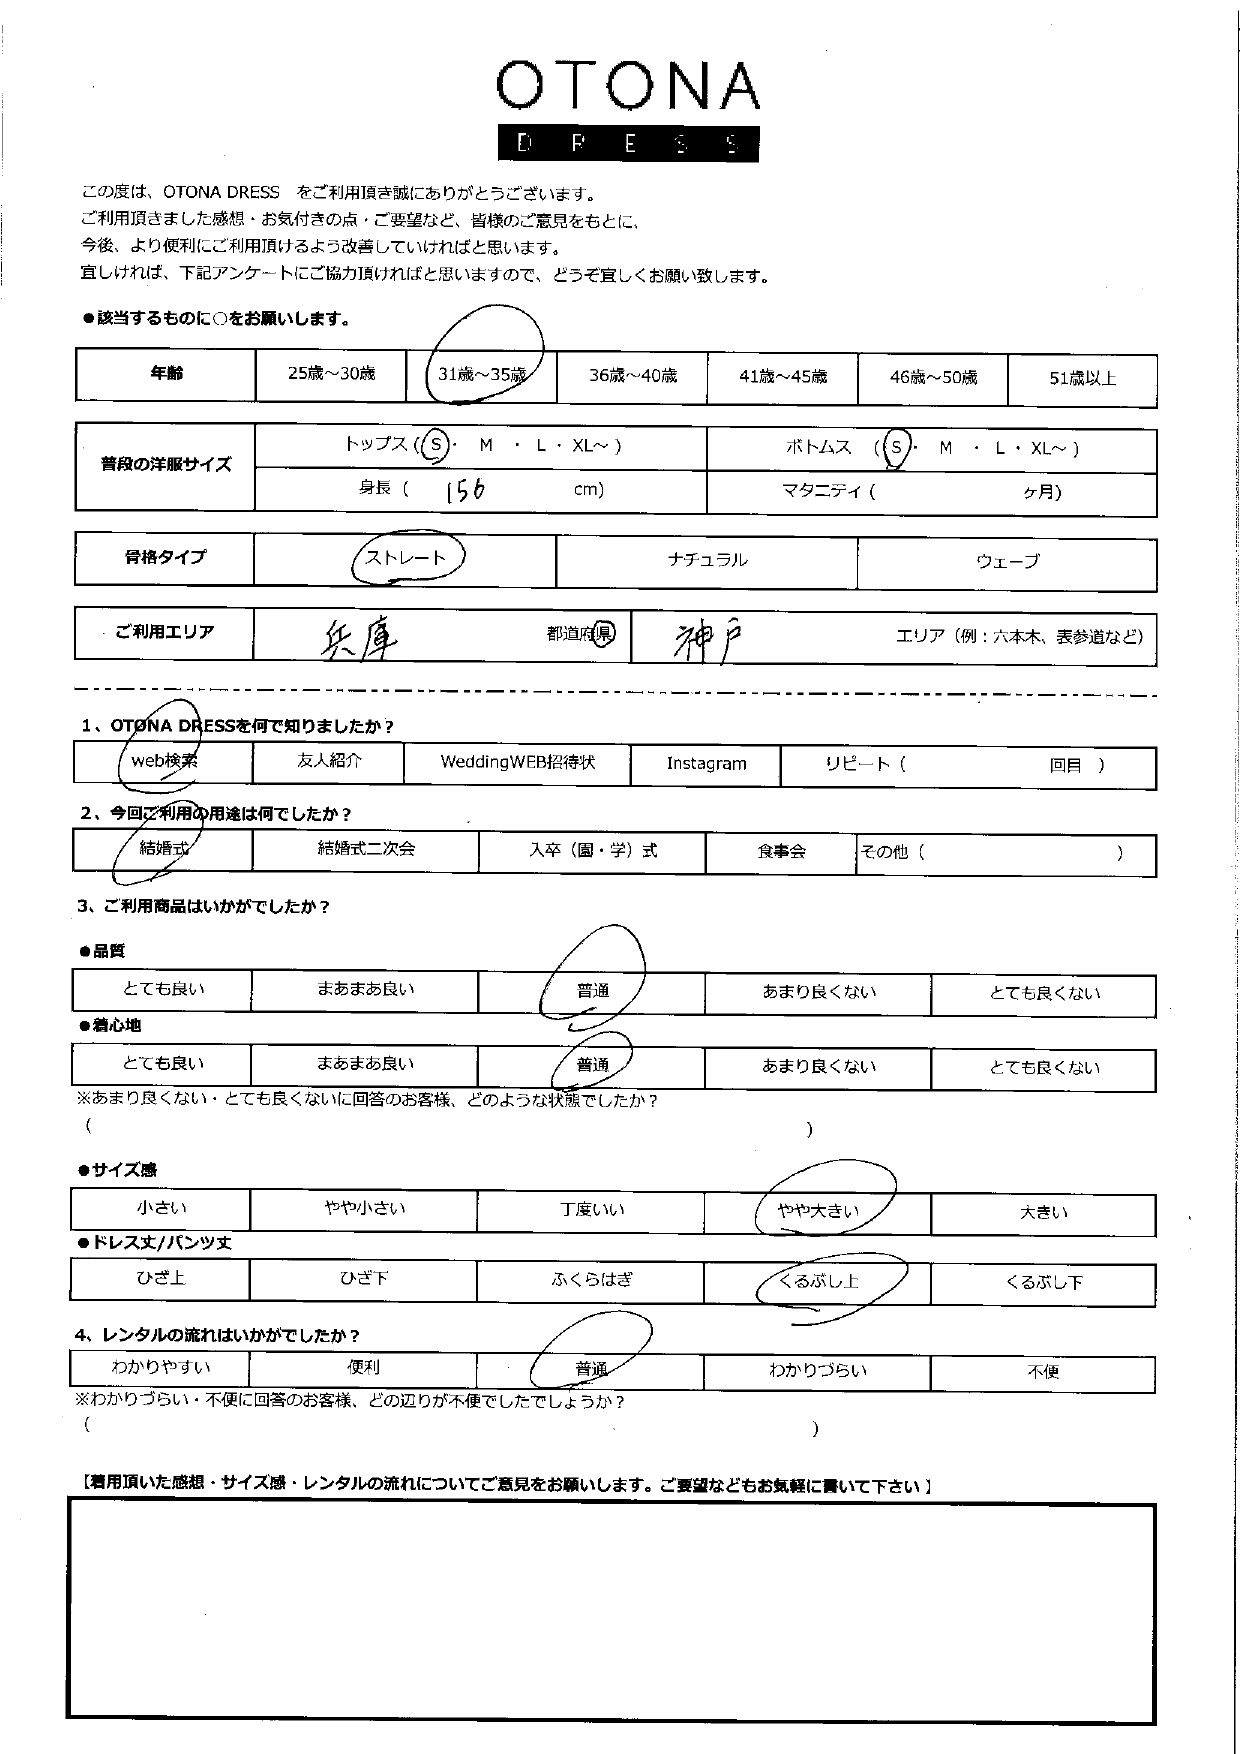 OTONA
DRESS
この度は、OTONA DRESS　をご利用頂き誠にありがとうございます。
ご利用頂きました感想・お気付きの点・ご要望など、皆様のご意見をもとに、
今後、より便利にご利用頂けるよう改善していければと思います。
宜しければ、下記アンケートにご協力頂ければと思いますので、どうぞ宜しくお願い致します。
●該当するものに○をお願いします。
年齢 25歳～30歳 31歳～35歳 36歳～40歳 41歳～45歳 46歳～50歳 51歳以上
普段の洋服サイズ トップス (S・ M ・ L・XL～ ) ボトムス (S・ M ・ L・XL～ )
身長 ( 156 cm) マタニティ ( ヶ月)
骨格タイプ ストレート ナチュラル ウェーブ
ご利用エリア 兵庫 都道府県 神戸 エリア（例：六本木、表参道など）
1、OTONA DRESSを何で知りましたか？
web検索 友人紹介 WeddingWEB招待状 Instagram リピート ( 回目 )
2、今回ご利用の用途は何でしたか？
結婚式 結婚式二次会 入卒（園・学）式 食事会 その他 ( )
3、ご利用商品はいかがでしたか？
●品質
とても良い まあまあ良い 普通 あまり良くない とても良くない
●着心地
とても良い まあまあ良い 普通 あまり良くない とても良くない
※あまり良くない・とても良くないに回答のお客様、どのような状態でしたか？
( )
●サイズ感
小さい やや小さい 丁度いい やや大きい 大きい
●ドレス丈/パンツ丈
ひざ上 ひざ下 ふくらはぎ くるぶし上 くるぶし下
4、レンタルの流れはいかがでしたか？
わかりやすい 便利 普通 わかりづらい 不便
※わかりづらい・不便に回答のお客様、どの辺りが不便でしたでしょうか？
( )
【着用頂いた感想・サイズ感・レンタルの流れについてご意見をお願いします。ご要望などもお気軽に書いて下さい】